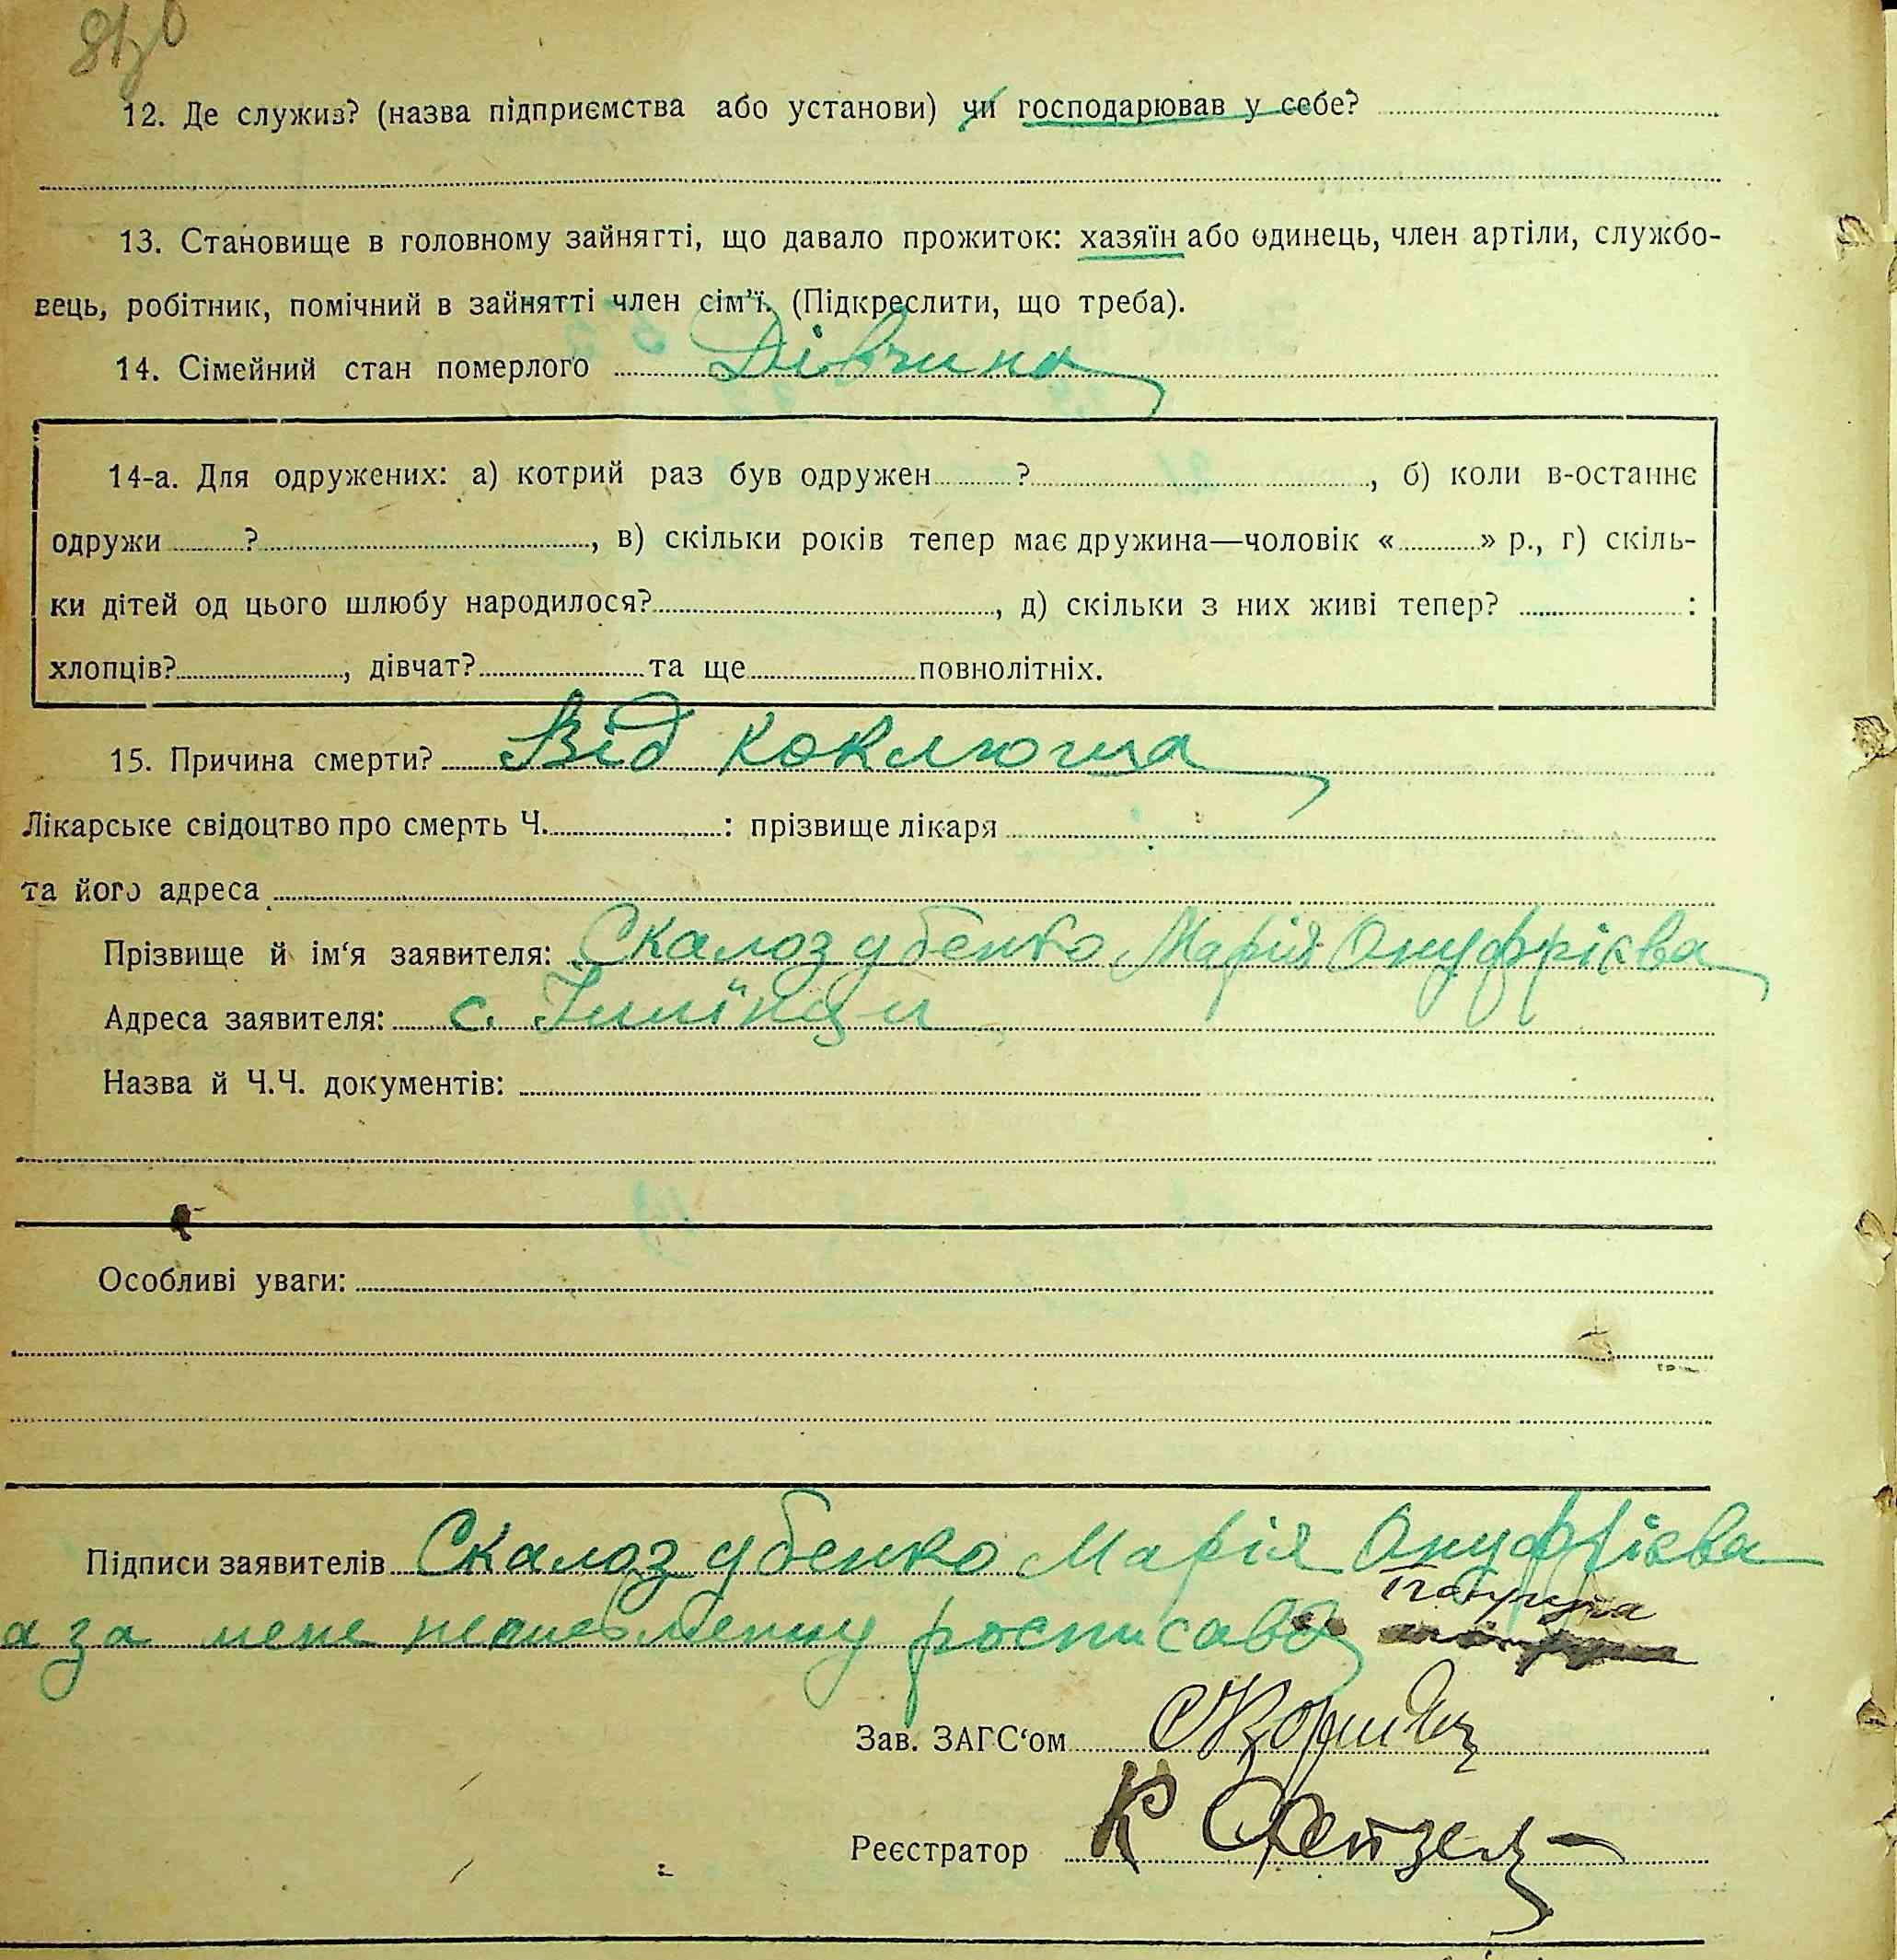 12. Де служив? (назва підприємства або установи) чи господарював у себе?
13. Становище в головному зайнятті, що давало прожиток: хазяїн або одинець, член артіли, службо-
вець, робітник, помічний в зайнятті член сім'ї. (Підкреслити, що треба).
14. Сімейний стан померлого Дівчина
14-а. Для одружених: а) котрий раз був одружен ? , б) коли в-останнє
одружи ? , в) скільки років тепер має дружина—чоловік « » р., г) скіль-
ки дітей од цього шлюбу народилося? , д) скільки з них живі тепер? :
хлопців? , дівчат? та ще повнолітніх.
15. Причина смерти? Від коклюша
Лікарське свідоцтво про смерть Ч. : прізвище лікаря
та його адреса
Прізвище й ім'я заявителя: Скалозубенко Марія Онуфрієва
Адреса заявителя: с. Іллінци
Назва й Ч.Ч. документів:
Особливі уваги:
Підписи заявителів Скалозубенко Марія Онуфрієва
а за мене росписавсь
Зав. ЗАГС'ом
Реєстратор К